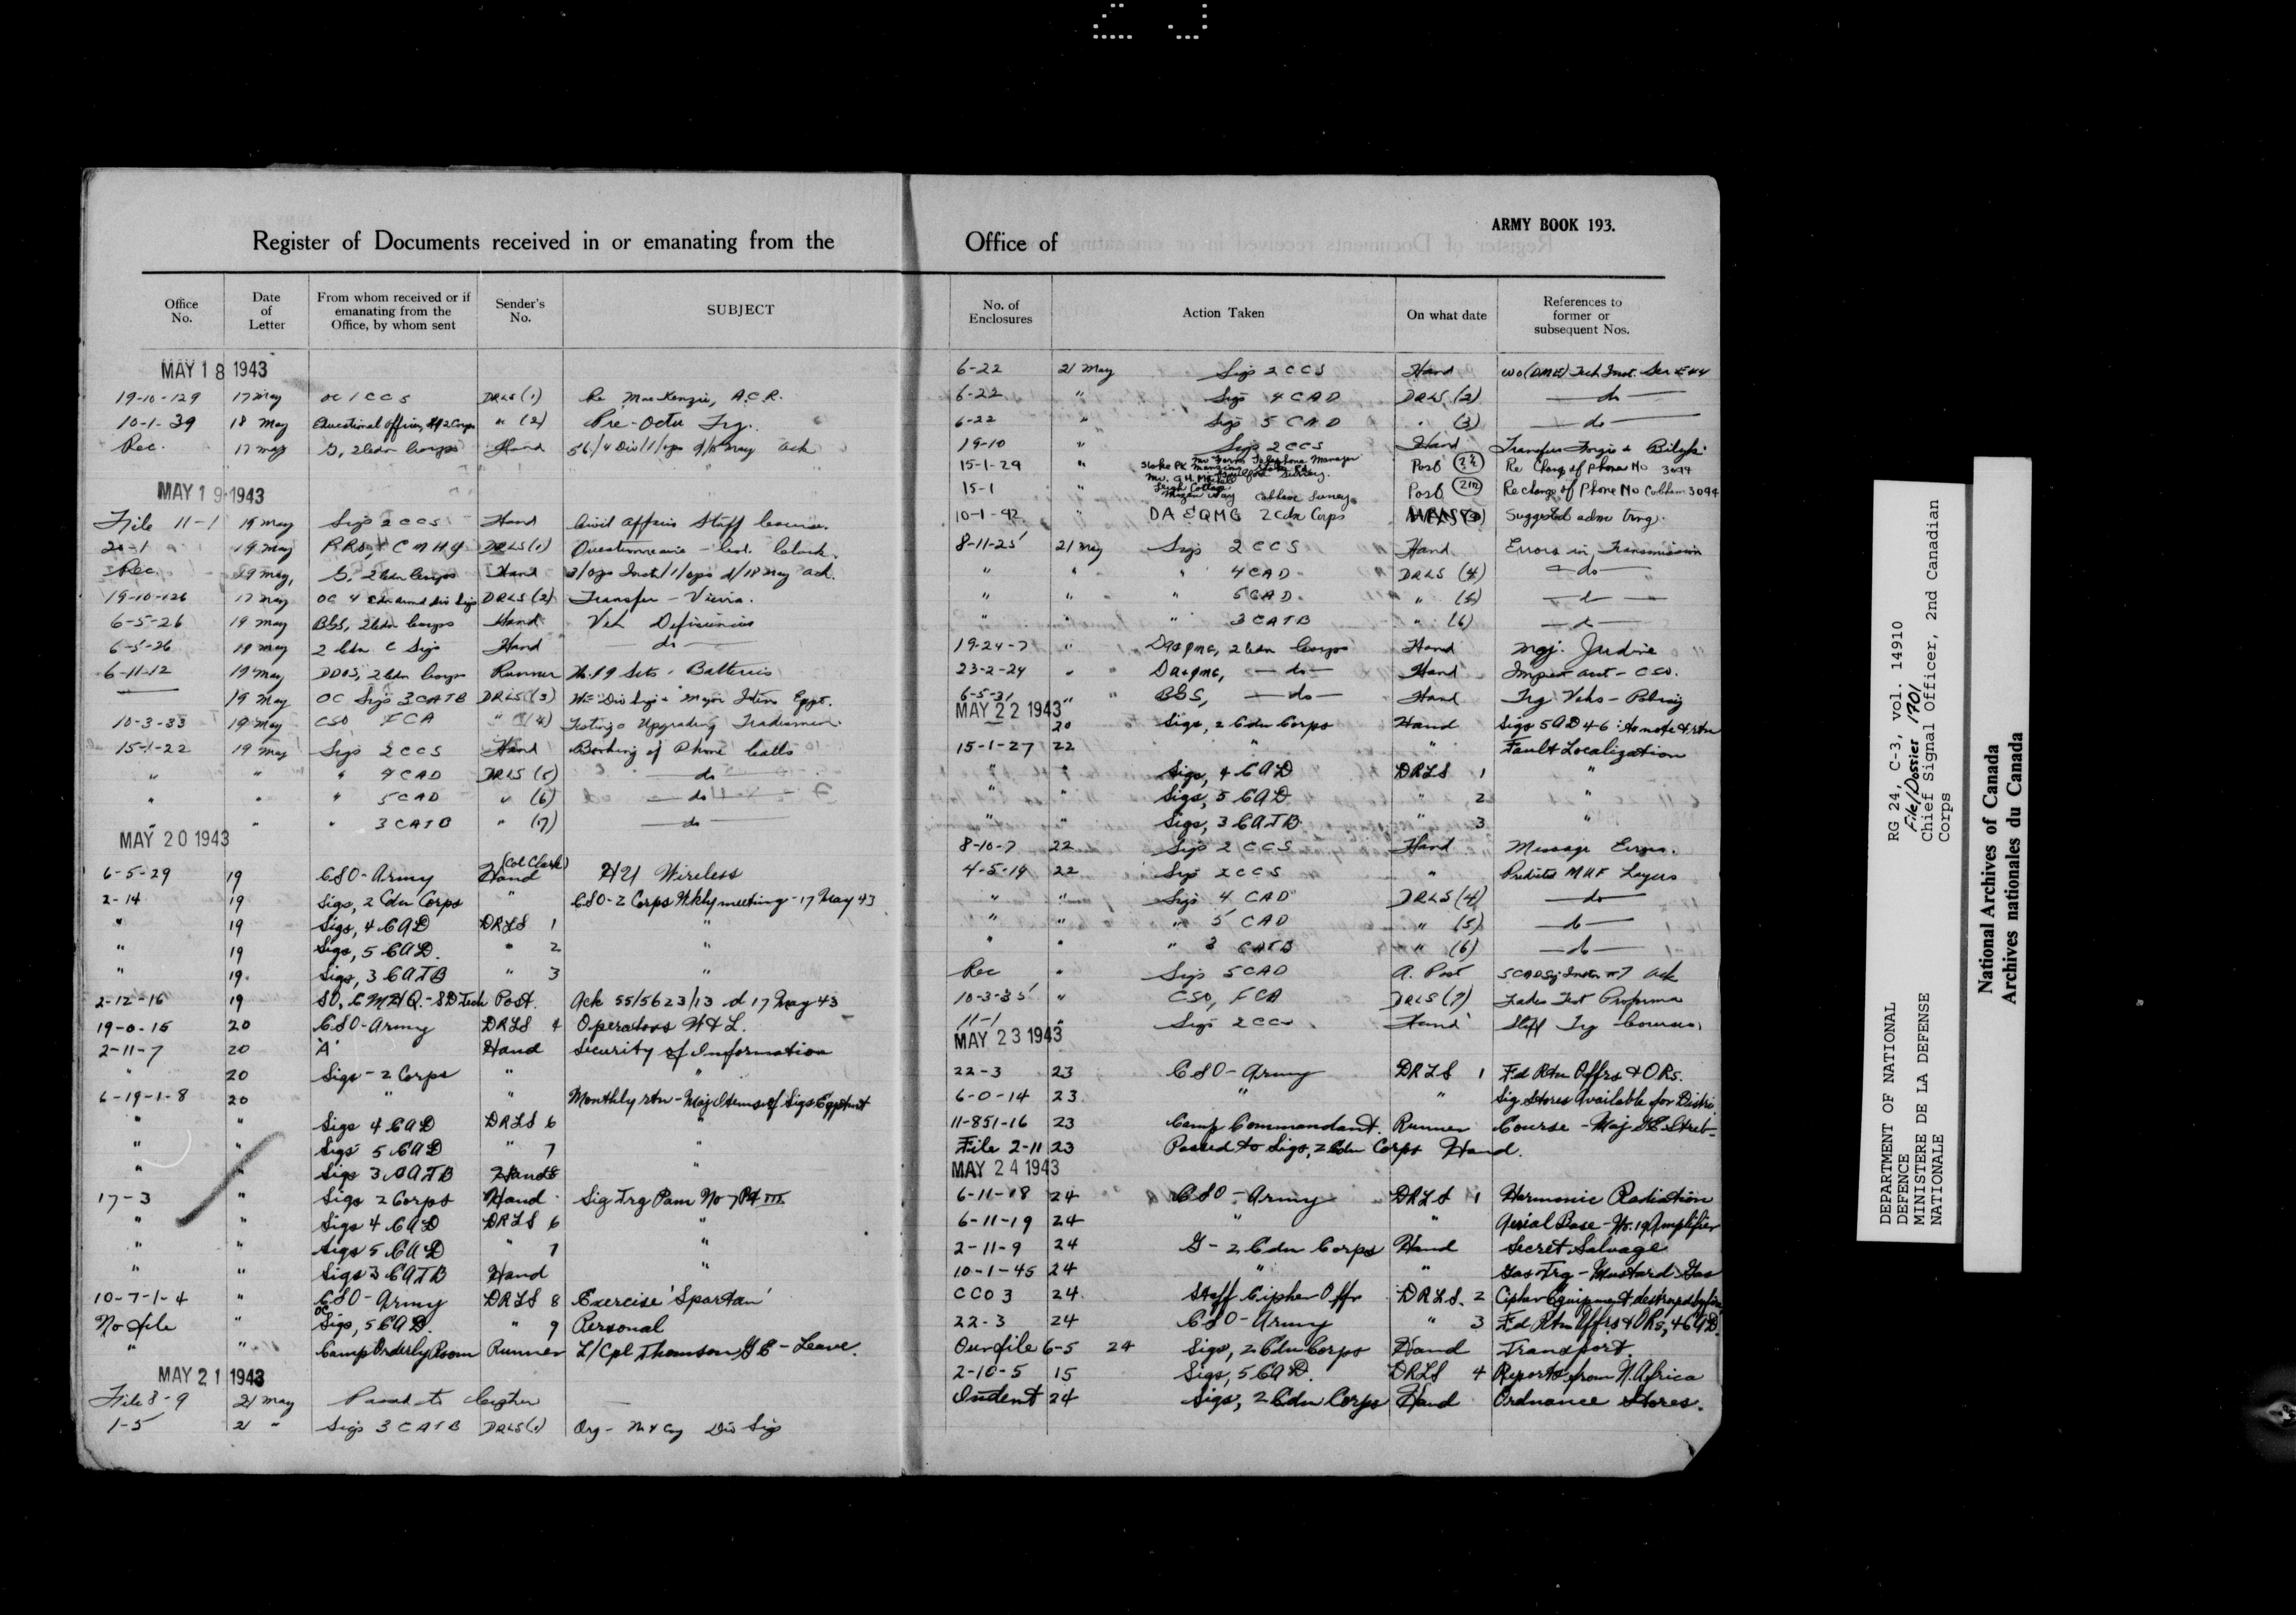 ARMY BOOK 193.
Register of Documents received in or emanating from the Office of
Office No. | Date of Letter | From whom received or if emanating from the Office, by whom sent | Sender's No. | SUBJECT
MAY 18 1943
19-10-129 17 May OC 1 CCS DRLS (1) Re MacKenzie, A.C.R.
10-1-39 18 May Educational Officer, HQ 2 Corps " (2) Pre-Octu Trg.
Rec. 17 May G, 2 Cdn Corps Hand 56/4 Div/1/ops d/17 May ack
MAY 19 1943
File 11-1 19 May Sigs 2 CCS Hand Civil Affairs Staff Course.
20-1 19 May CMHQ DRLS (1) Questionnaire
Rec. 19 May, G, 2 Cdn Corps Hand 3/ops Instr/1/ops d/18 May ack.
19-10-126 17 May OC 4 Cdn Armd Div Sigs DRLS (2) Transfer - Vieira.
6-5-26 19 May BGS, 2 Cdn Corps Hand Veh Deficiencies
6-5-26 19 May 2 Cdn C Sigs Hand — do —
6-11-12 19 May DDOS, 2 Cdn Corps Runner No. 19 Sets - Batteries
— 19 May OC Sigs 3 CATB DRLS (3) Major Items Eqpt.
10-3-33 19 May CSO FCA " (4) Testing & Upgrading Tradesmen.
15-1-22 19 May Sigs 2 CCS Hand Booking of Phone Calls
" " " 4 CAD DRLS (5) — do —
" " " 5 CAD " (6) — do —
" " " 3 CATB " (7) — do —
MAY 20 1943
6-5-29 19 CSO-Army Hand (Col Clark) H21 Wireless
2-14 19 Sigs, 2 Cdn Corps " CSO-2 Corps Wkly meeting - 17 May 43
" 19 Sigs, 4 CAD DRLS 1 "
" 19 Sigs, 5 CAD. " 2 "
" 19. Sigs, 3 CATB " 3 "
2-12-16 19 SO, CMHQ.-SD Tech Post. Ack 55/5623/13 d 17 May 43
19-0-15 20 CSO-Army DRLS 4 Operators W & L.
2-11-7 20 'A' Hand Security of Information
" 20 Sigs - 2 Corps " "
6-19-1-8 20 " " Monthly rtn - Maj Items of Sigs Eqptmt
" " Sigs 4 CAD DRLS 6 "
" " Sigs 5 CAD " 7 "
" " Sigs 3 CATB Hand 8 "
17-3 " Sigs 2 Corps Hand Sig Trg Pam No 7 Pt III
" " Sigs 4 CAD DRLS 6 "
" " Sigs 5 CAD " 7 "
" " Sigs 3 CATB Hand "
10-7-1-4 " CSO-Army DRLS 8 Exercise 'Spartan'
No file " OC Sigs, 5 CAD. " 9 Personal
" " Camp Orderly Room Runner L/Cpl Thomson, G C - Leave.
MAY 21 1943
File 8-9 21 May Passed to Cipher
1-5 21 " Sigs 3 CATB DRLS (1) Org - Div Sigs
No. of Enclosures | Action Taken | On what date | References to former or subsequent Nos.
6-22 21 May Sigs 2 CCS Hand WO (DME) Tech Inst.
6-22 " Sigs 4 CAD DRLS (2) — do —
6-22 " Sigs 5 CAD " (3) — do —
19-10 " Sigs 2 CCS Hand Transfer
15-1-29 " Telephone Manager Stoke Pk Guildford Surrey. Post Re Change of Phone No 3094
15-1 " Cobham Surrey. Post Re change of Phone No Cobham 3094
10-1-42 " DA & QMG 2 Cdn Corps Suggested adm trng.
8-11-25 21 May Sigs 2 CCS Hand Errors in Transmission
" " " 4 CAD DRLS (4) — do —
" " " 5 CAD " (5) — do —
" " " 3 CATB " (6) — do —
19-24-7 " DA&QMG, 2 Cdn Corps Hand Maj. Jardine
23-2-24 " DA&QMG, — do — Hand
6-5-31 " BGS, — do — Hand Trg Vehs - Policy
MAY 22 1943
— 20 Sigs, 2 Cdn Corps Hand Sigs 5AD 46: To note & rtn
15-1-27 22 " " Fault Localization
" " Sigs, 4 CAD DRLS 1 "
" " Sigs, 5 CAD. " 2 "
" " Sigs, 3 CATB. " 3 "
8-10-7 22 Sigs 2 CCS Hand Message Errors.
4-5-19 22 Sigs 2 CCS " Predicted MUF Layers
" " Sigs 4 CAD DRLS (4) — do —
" " " 5 CAD " (5) — do —
" " " 3 CATB " (6) — do —
Rec " Sigs 5 CAD A. Post 5 CAD Sig Instr 7 Ack
10-3-35 " CSO, FCA DRLS (7) Trades Test Proforma
11-1 " Sigs 2 CCS Hand Staff Trg Courses
MAY 23 1943
22-3 23 CSO-Army DRLS 1 Fd Rtn Offrs & ORs.
6-0-14 23. " " Sig Stores Available for Distri.
11-851-16 23 Camp Commandant. Runner Course - Maj
File 2-11 23 Passed to Sigs, 2 Cdn Corps Hand.
MAY 24 1943
6-11-18 24 CSO-Army DRLS 1 Harmonic Radiation
6-11-19 24 " " Aerial Base - No. 19 Amplifier
2-11-9 24 G - 2 Cdn Corps Hand Secret Salvage
10-1-45 24 " " Gas Trg - Mustard Gas
CCO 3 24. Staff Cipher Offr DRLS. 2 Cipher Equipment destroyed by fire
22-3 24 CSO-Army " 3 Fd Rtn Offrs & ORs, 4 CAD.
Our file 6-5 24 Sigs, 2 Cdn Corps Hand Transport.
2-10-5 15 Sigs, 5 CAD. DRLS 4 Reports from N. Africa
Indent 24 Sigs, 2 Cdn Corps Hand Ordnance Stores.
DEPARTMENT OF NATIONAL DEFENCE
MINISTERE DE LA DEFENSE NATIONALE
RG 24, C-3, vol. 14910
File/Dossier 1701
Chief Signal Officer, 2nd Canadian Corps
National Archives of Canada
Archives nationales du Canada